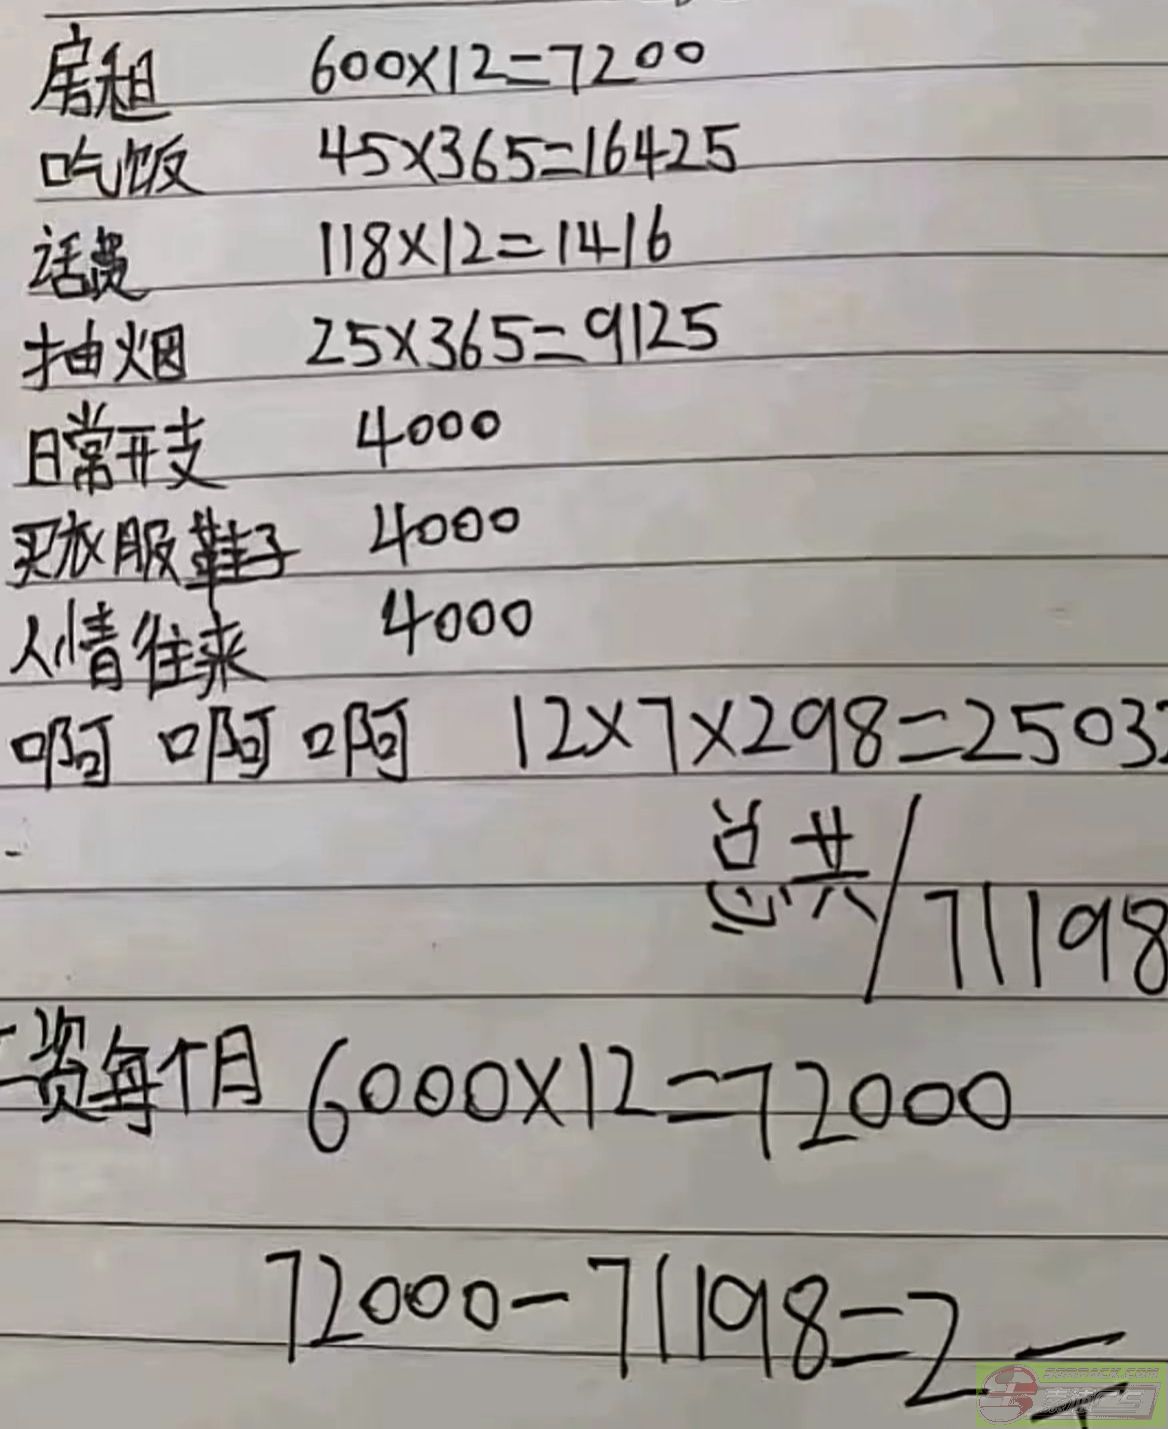 房租 600×12=7200
吃饭 45×365=16425
话费 118×12=1416
抽烟 25×365=9125
日常开支 4000
买衣服鞋子 4000
人情往来 4000
啊 啊 啊 12×7×298=25032
总共/71198
工资每个月 6000×12=72000
72000-71198=2元